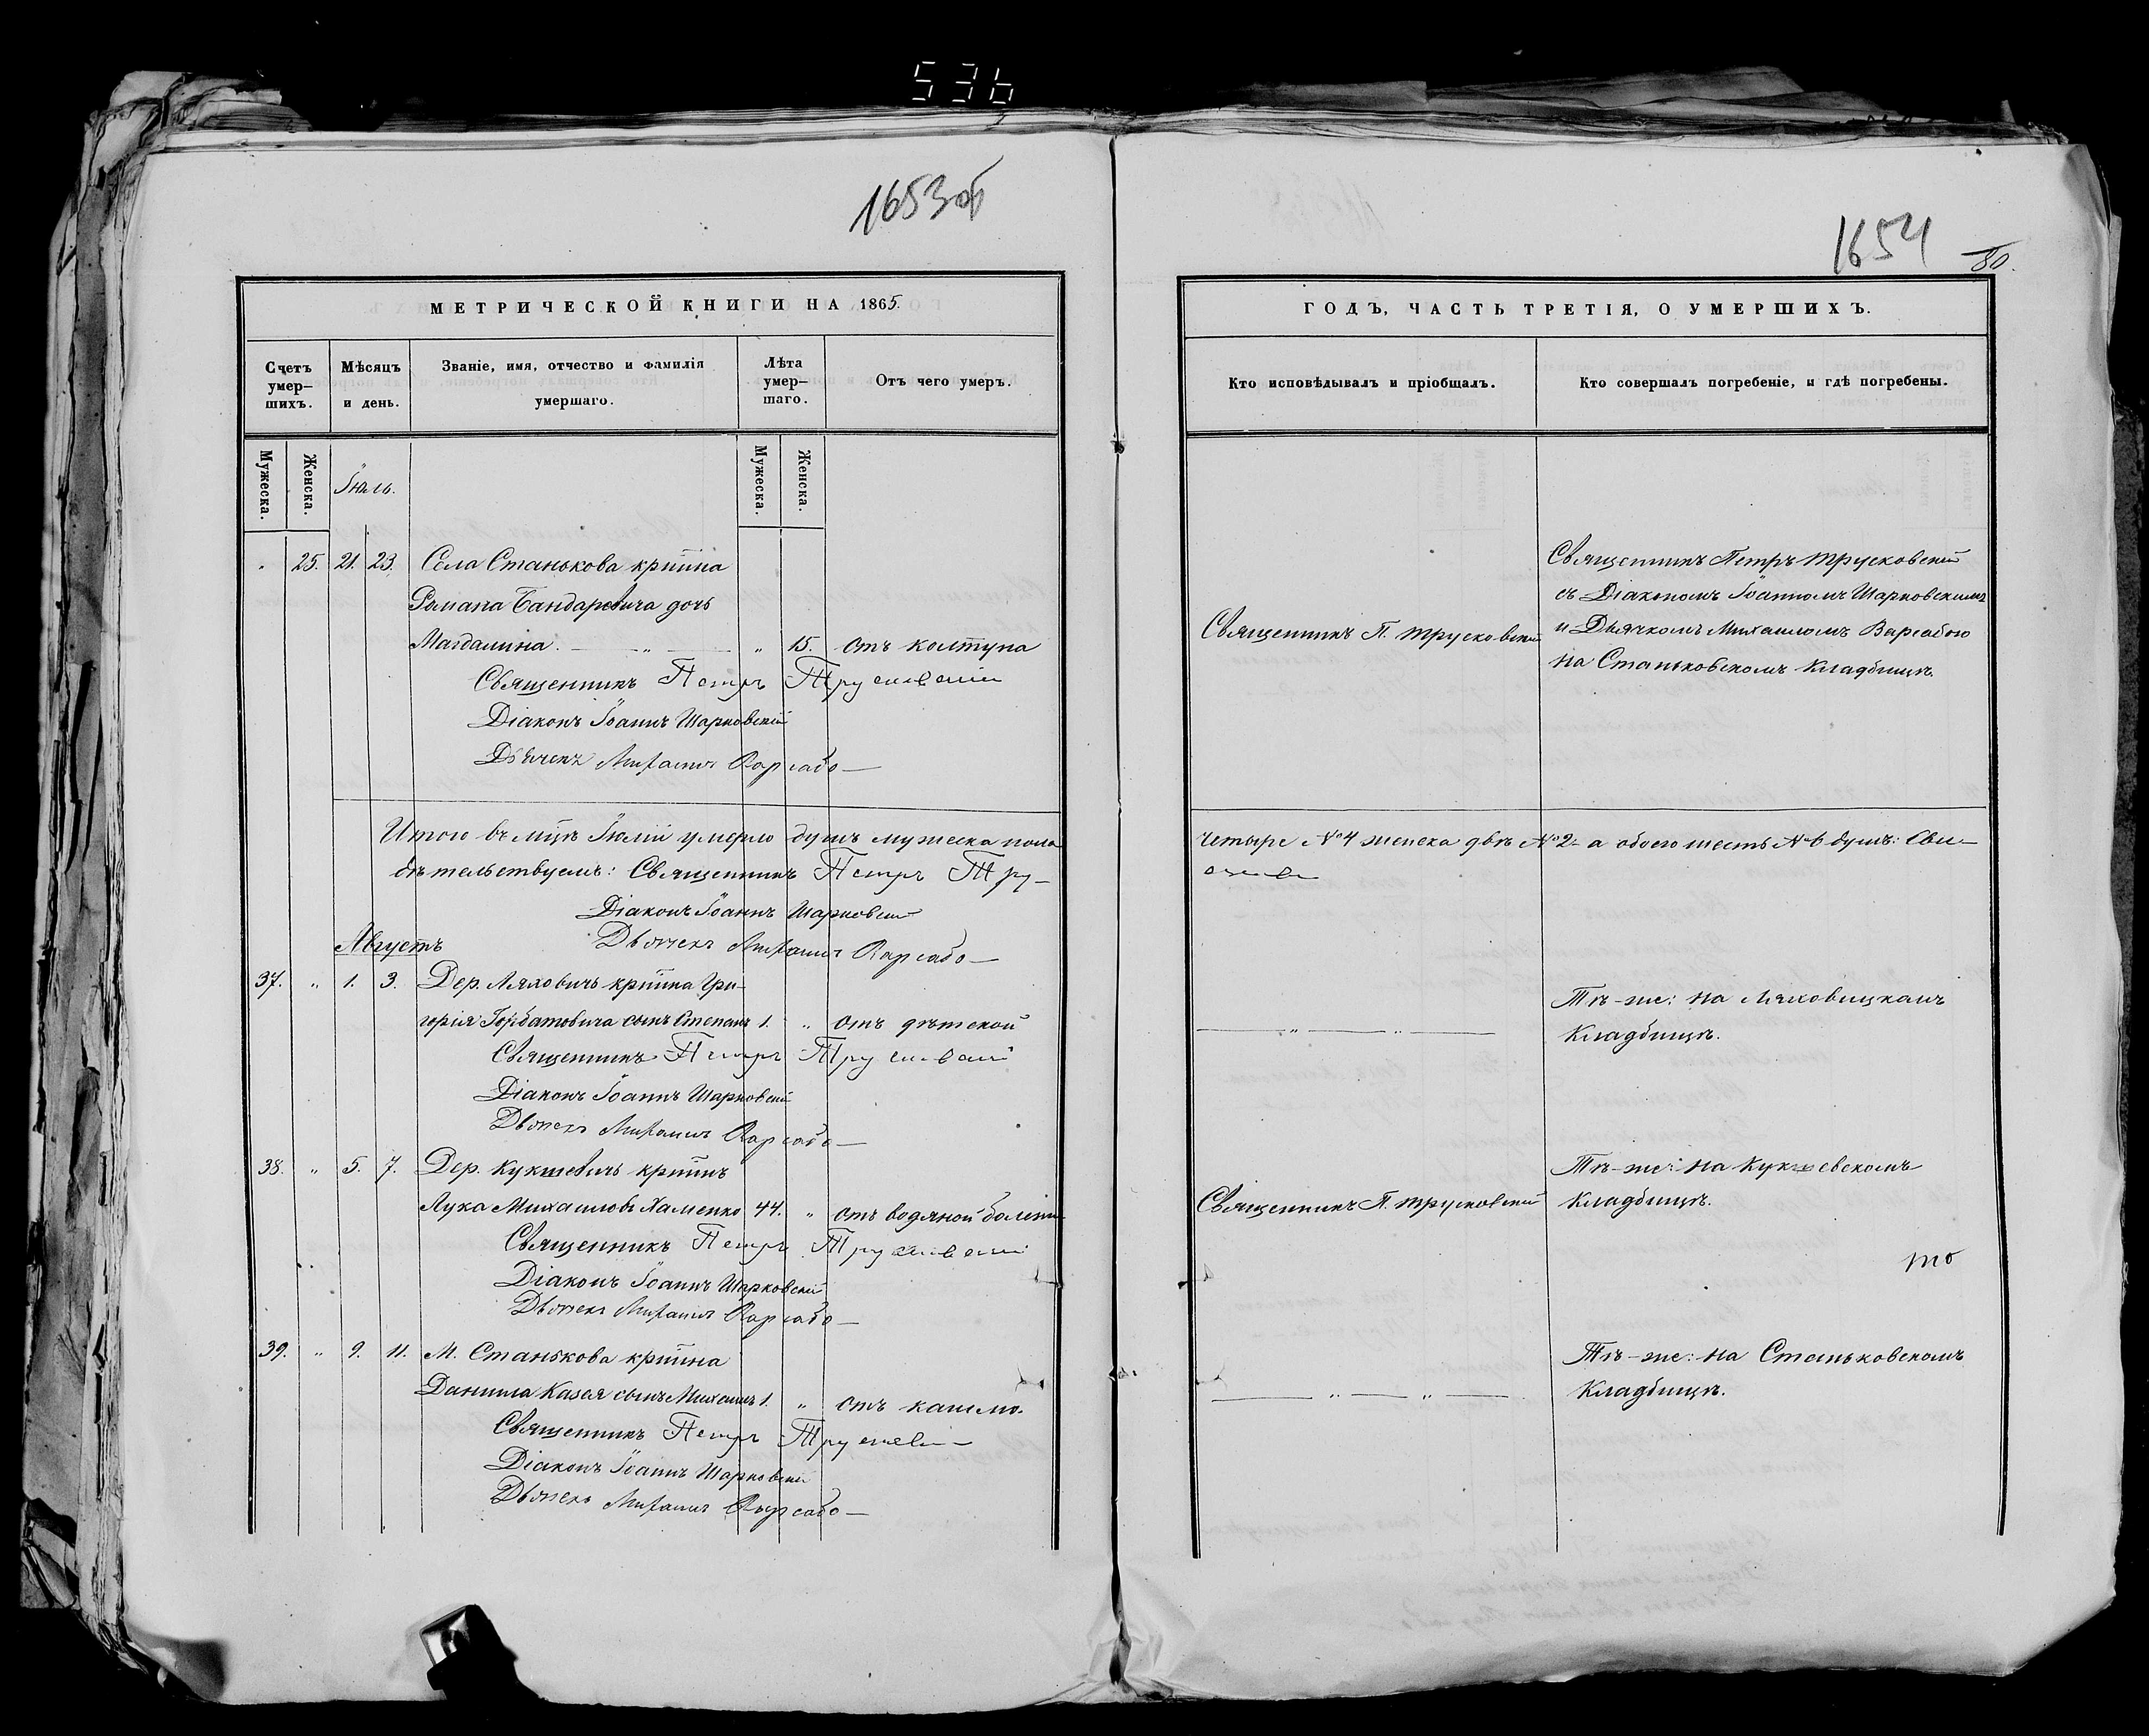 536
1653об
МЕТРИЧЕСКОЙ КНИГИ НА 1865.
Счетъ умер-шихъ.
Мѣсяцъ и день.
Званіе, имя, отчество и фамилія умершаго.
Лѣта умер-шаго.
Отъ чего умеръ.
Мужеска.
Женска.
Іюль.
Мужеска.
Женска.
25. 21. 23. Села Станькова кр҃нина
Романа Бандаревича дочь
Магдалина. — „ — „ 15. отъ колтуна
Священникъ Петръ Трусковскій
Діаконъ Іоаннъ Шарковскій
Дьячекъ Михаилъ Варсабо —
Итого въ мц҃ѣ Іюлѣ умерло душъ мужеска пола
дѣтельствуемъ: Священникъ Петръ Тру-
Діаконъ Іоаннъ Шарковскій
Августъ
Дьячекъ Михаилъ Варсабо —
37. „ 1. 3. Дер. Ляховичъ кр҃нина Гри-
горія Горбатовича сынъ Степанъ 1. „ отъ дѣтской
Священникъ Петръ Трусковскій
Діаконъ Іоаннъ Шарковскій
Дьячекъ Михаилъ Варсабо —
38. „ 5. 7. Дер. Кукшевичъ кр҃нинъ
Лука Михаиловъ Хаменко 44. „ отъ водяной болѣзни
Священникъ Петръ Трусковскій
Діаконъ Іоаннъ Шарковскій
Дьячекъ Михаилъ Варсабо —
39. „ 9. 11. М. Станькова кр҃нина
Даниила Казея сынъ Михаилъ 1. „ отъ кашлю.
Священникъ Петръ Трусковскій
Діаконъ Іоаннъ Шарковскій
Дьячекъ Михаилъ Варсабо —
1654
80.
ГОДЪ, ЧАСТЬ ТРЕТІЯ, О УМЕРШИХЪ.
Кто исповѣдывалъ и пріобщалъ.
Кто совершалъ погребеніе, и гдѣ погребены.
Священникъ Петръ Трусковскій
съ Діакономъ Іоанномъ Шарковскимъ
Священникъ П. Трусковскій
и Дьячкомъ Михаиломъ Варсабою
на Станьковскомъ Кладбищѣ.
четыре №4 женска двѣ №2- а обоего шесть №6 душъ: Сви-
сковскій
Тѣ-же: на Ляховицкомъ
— „ — „ —
Кладбищѣ.
Тѣ-же: на Кукшевскомъ
Священникъ П. Трусковскій
Кладбищѣ.
то
Тѣ-же: на Станьковскомъ
— „ — „ —
Кладбищѣ.